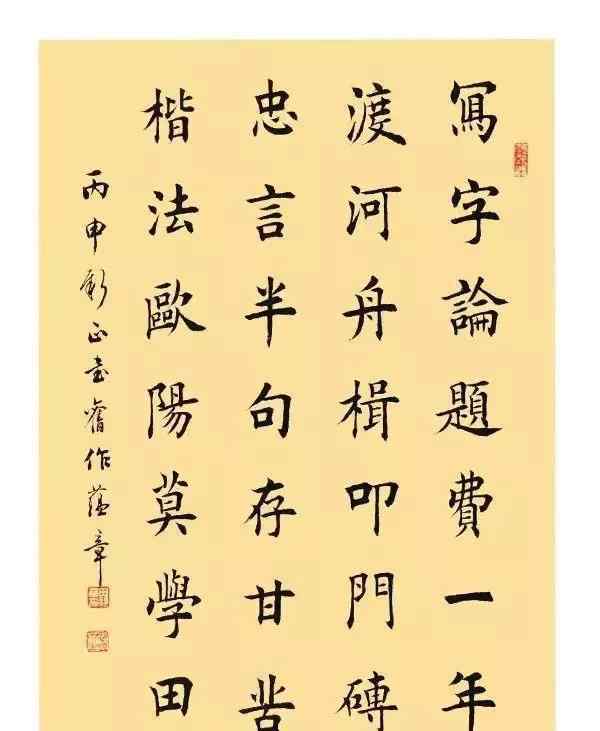 冩字論題費一年
渡河舟楫叩門磚
忠言半句存甘苦
楷法歐陽莫學田
丙申新正書舊作蘊章